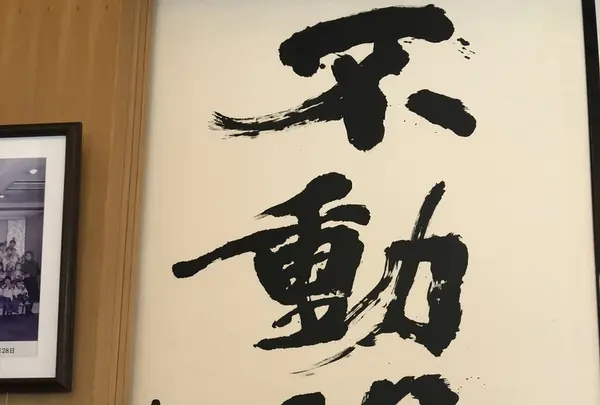 不動
28日